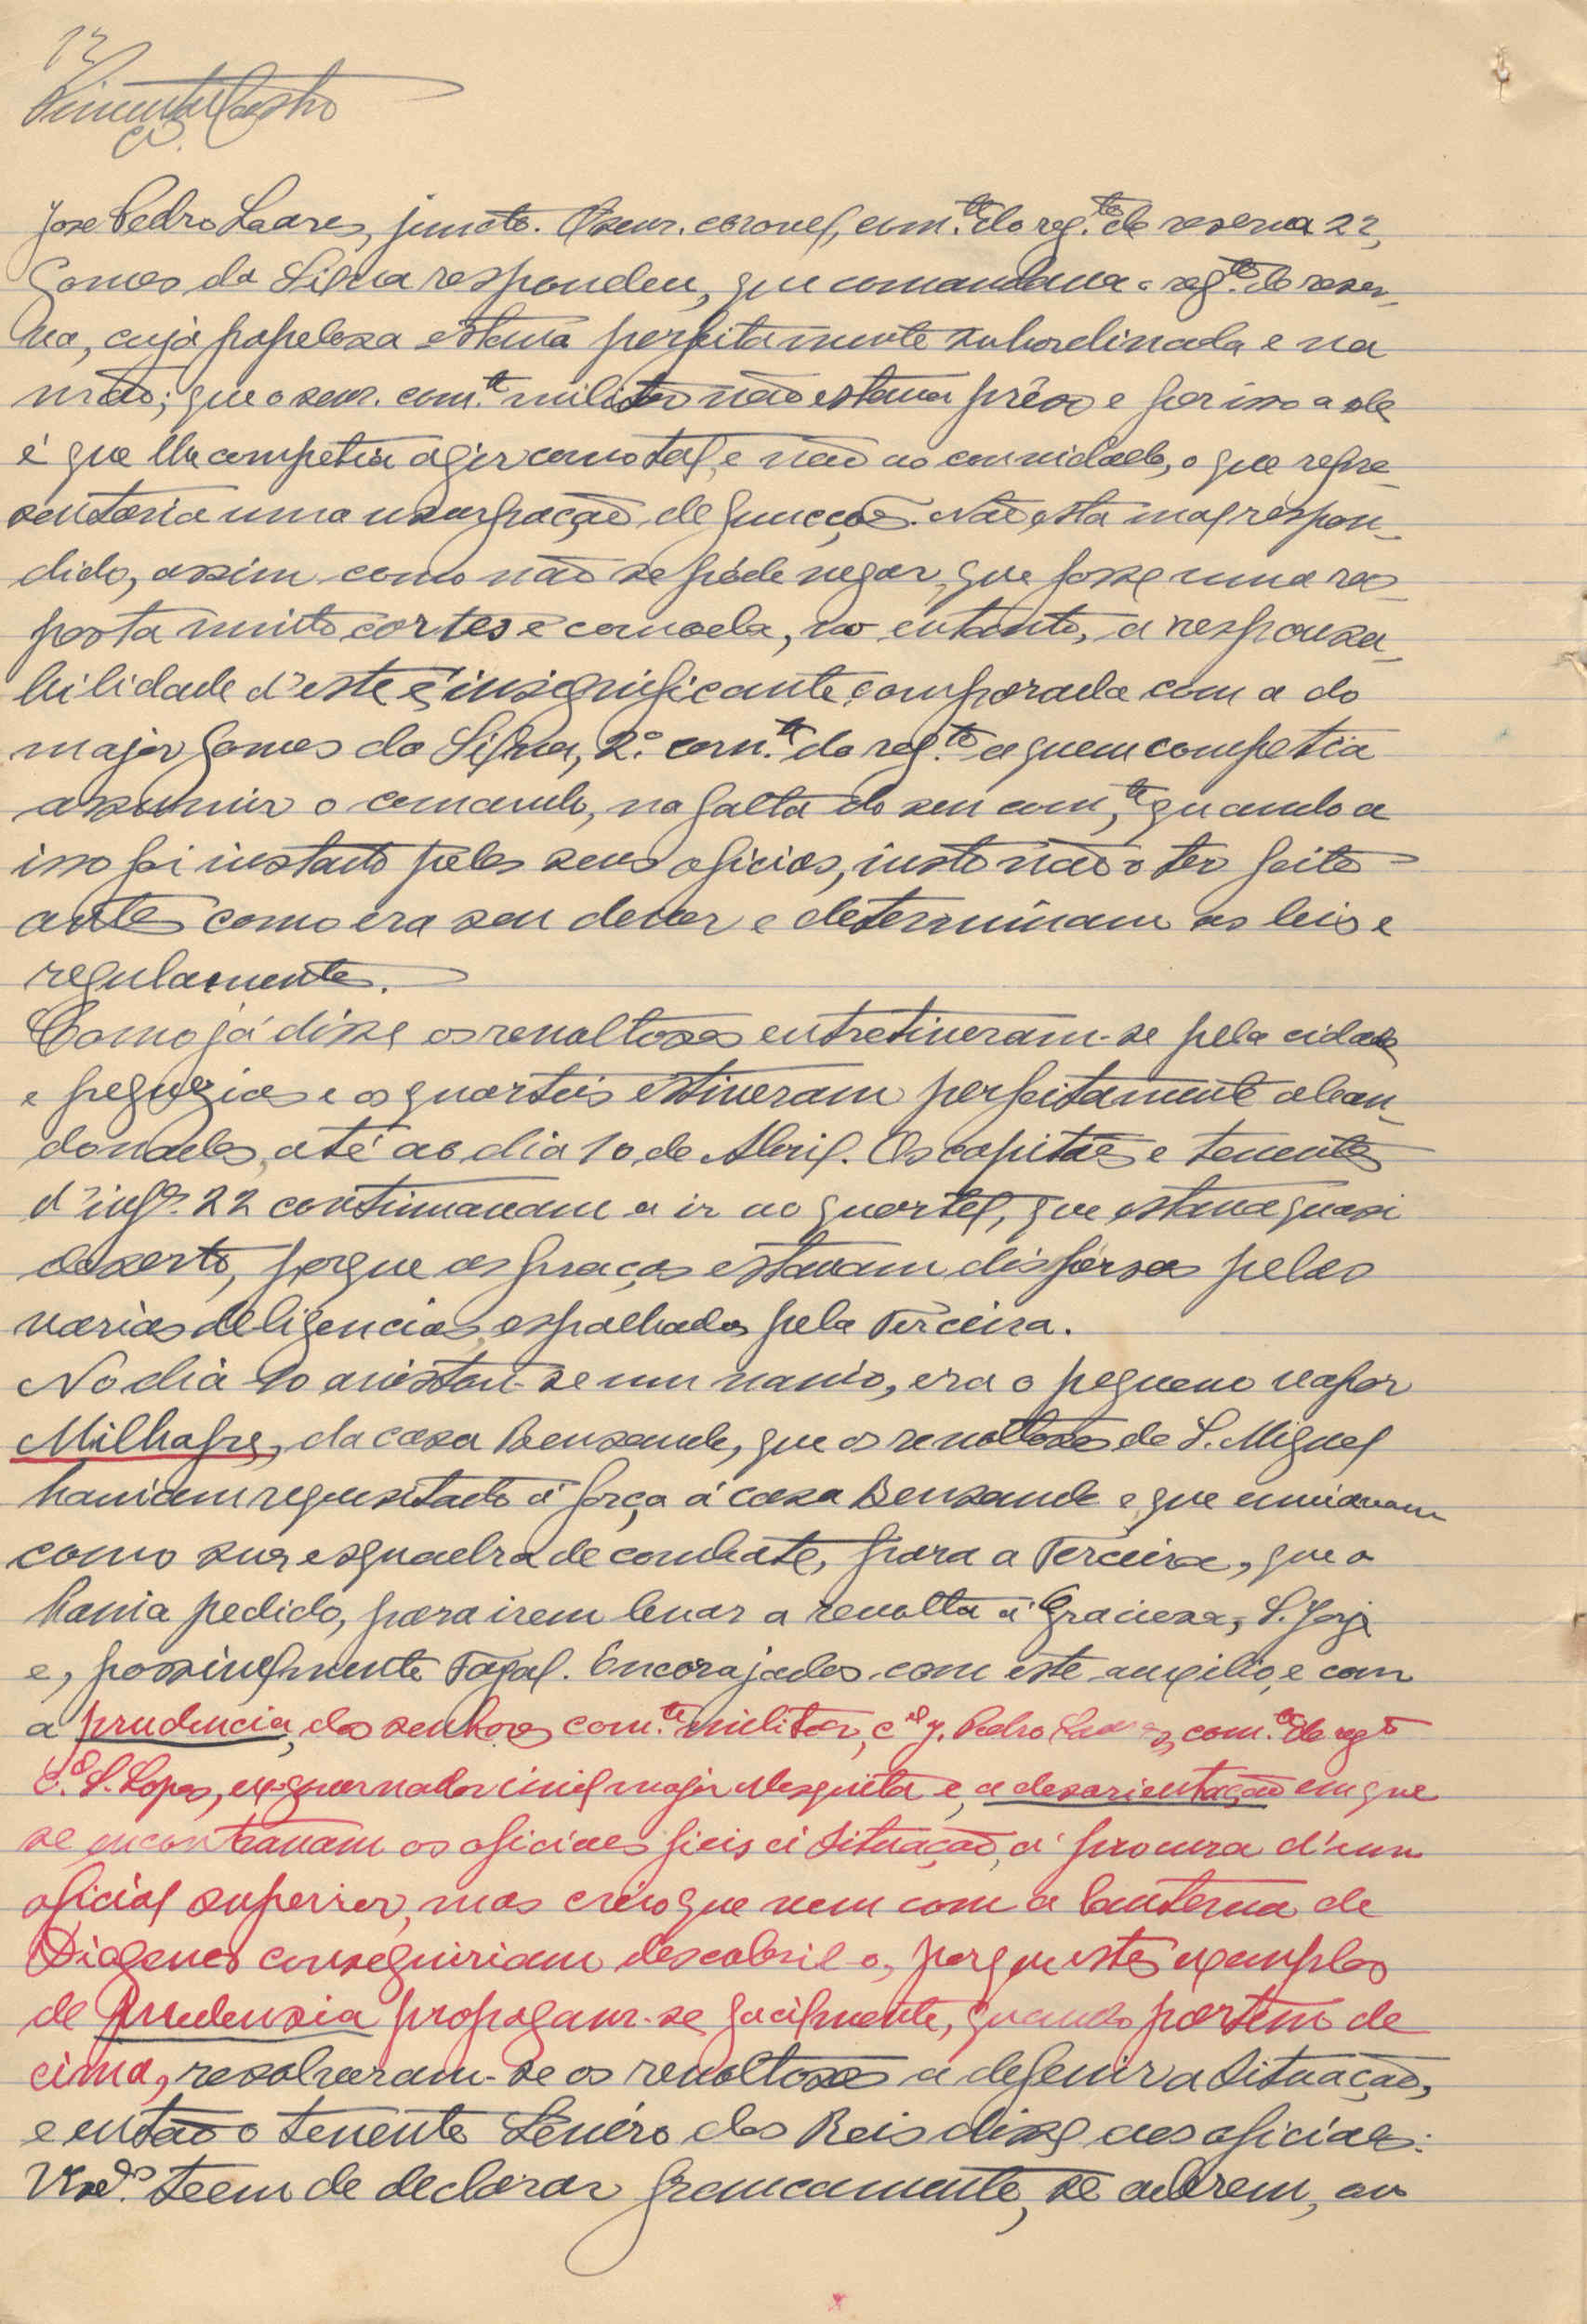 12
Pimentel Castro
José Pedro Soares, juncto. O senr. coronel, com.te do reg.to de reserva 22,
Gomes da Silva respondeu, que comandava o reg.to de reser-
va, cuja papelosa estava perfeitamente subordinada e na
mão; que o senr. com.te militar não estava prêso e por isso a ele
é que lhe competia agir como tal, e não ao convidado, o que repre-
sentaria uma usurpação de funcções. Não está mal respon-
dido, assim como não se póde negar, que fosse uma res-
posta muito cortes e comoda, no entanto, a responsa-
bilidade d'este é insignificante comparada com a do
major Gomes da Silva, 2.º com.te do reg.to a quem competia
assumir o comando, na falta do seu com.te, quando a
isso foi instado pelos seus oficiaes, visto não o ter feito
antes como era seu dever e determinam as leis e
regulamentos.
Como já disse os revoltosos entretiveram-se pela cidade
e freguezias e os quarteis estiveram perfeitamente aban-
donados, até ao dia 10 de Abril. Os capitães e tenentes
d'inf.ª 22 continuavam a ir ao quartel, que estava quasi
deserto, porque as praças estavam dispersas pelas
varias deligencias espalhadas pela Terceira.
No dia 10 avistou-se um navio, era o pequeno vapor
Milhafre, da casa Bensaude, que os revoltosos de S. Miguel
haviam requesitado á força á casa Bensaude e que enviavam
como sua esquadra de combate, para a Terceira, que a
havia pedido, para irem levar a revolta á Graciosa, S. Jorje
e, possivelmente Faial. Encorajados com este auxilio, e com
a prudencia, dos senhores com.te militar, c.el J. Pedro Soares, com.te do regto
c.el S. Lopes, ex-governador civil major Mesquita e, a desorientação em que
se encontravam os oficiaes fieis á situação, á procura d'um
oficial superior, mas creio que nem com a lanterna de
Diogenes conseguiriam descobril-o, porque estes exemplos
de prudensia propagam-se facilmente, quando partem de
cima, resolveram-se os revoltosos a defenir a situação,
e então o tenente Lenéro dos Reis disse aos oficiaes:
V.sas teem de declarar francamente, se aderem, ou